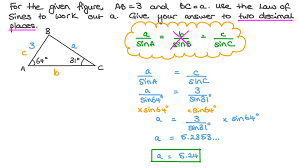 For the given figure, AB=3 and BC=a. Use the Law
of Sines to work out a. Give your answer to two decimal
places.
B
3
a
c
64°
31°
A
b
C
a/sinA = b/sinB = c/sinC
a/sinA = c/sinC
a/sin64° = 3/sin31°
×sin64° ×sin64°
a = 3/sin31° × sin64°
a = 5.2353...
a = 5.24